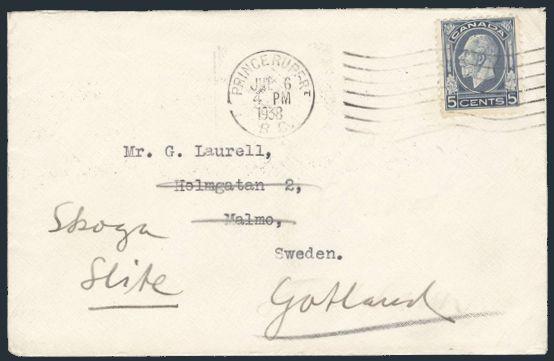 CANADA
5 CENTS 5
PRINCE RUPERT
JUL 6
4 PM
1938
B.C.
Mr. G. Laurell,
Holmgatan 2,
Malmo,
Sweden.
Skoga
Slite
Gotland